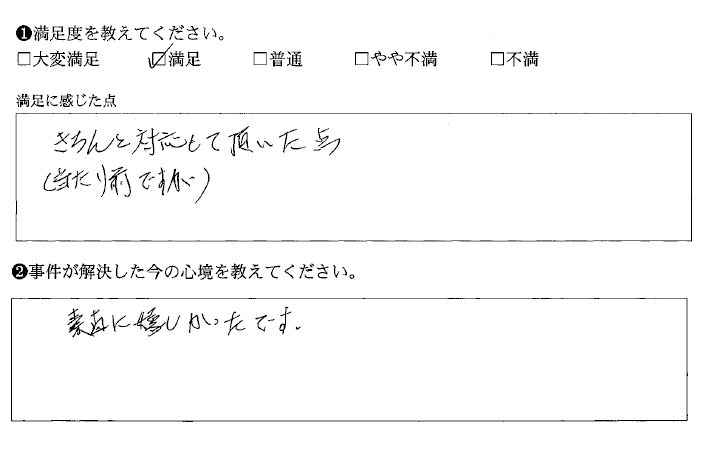 ❶満足度を教えてください。
□大変満足 ☑満足 □普通 □やや不満 □不満
満足に感じた点
きちんと対応して頂いた点
(当たり前ですが)
❷事件が解決した今の心境を教えてください。
素直に嬉しかったです。